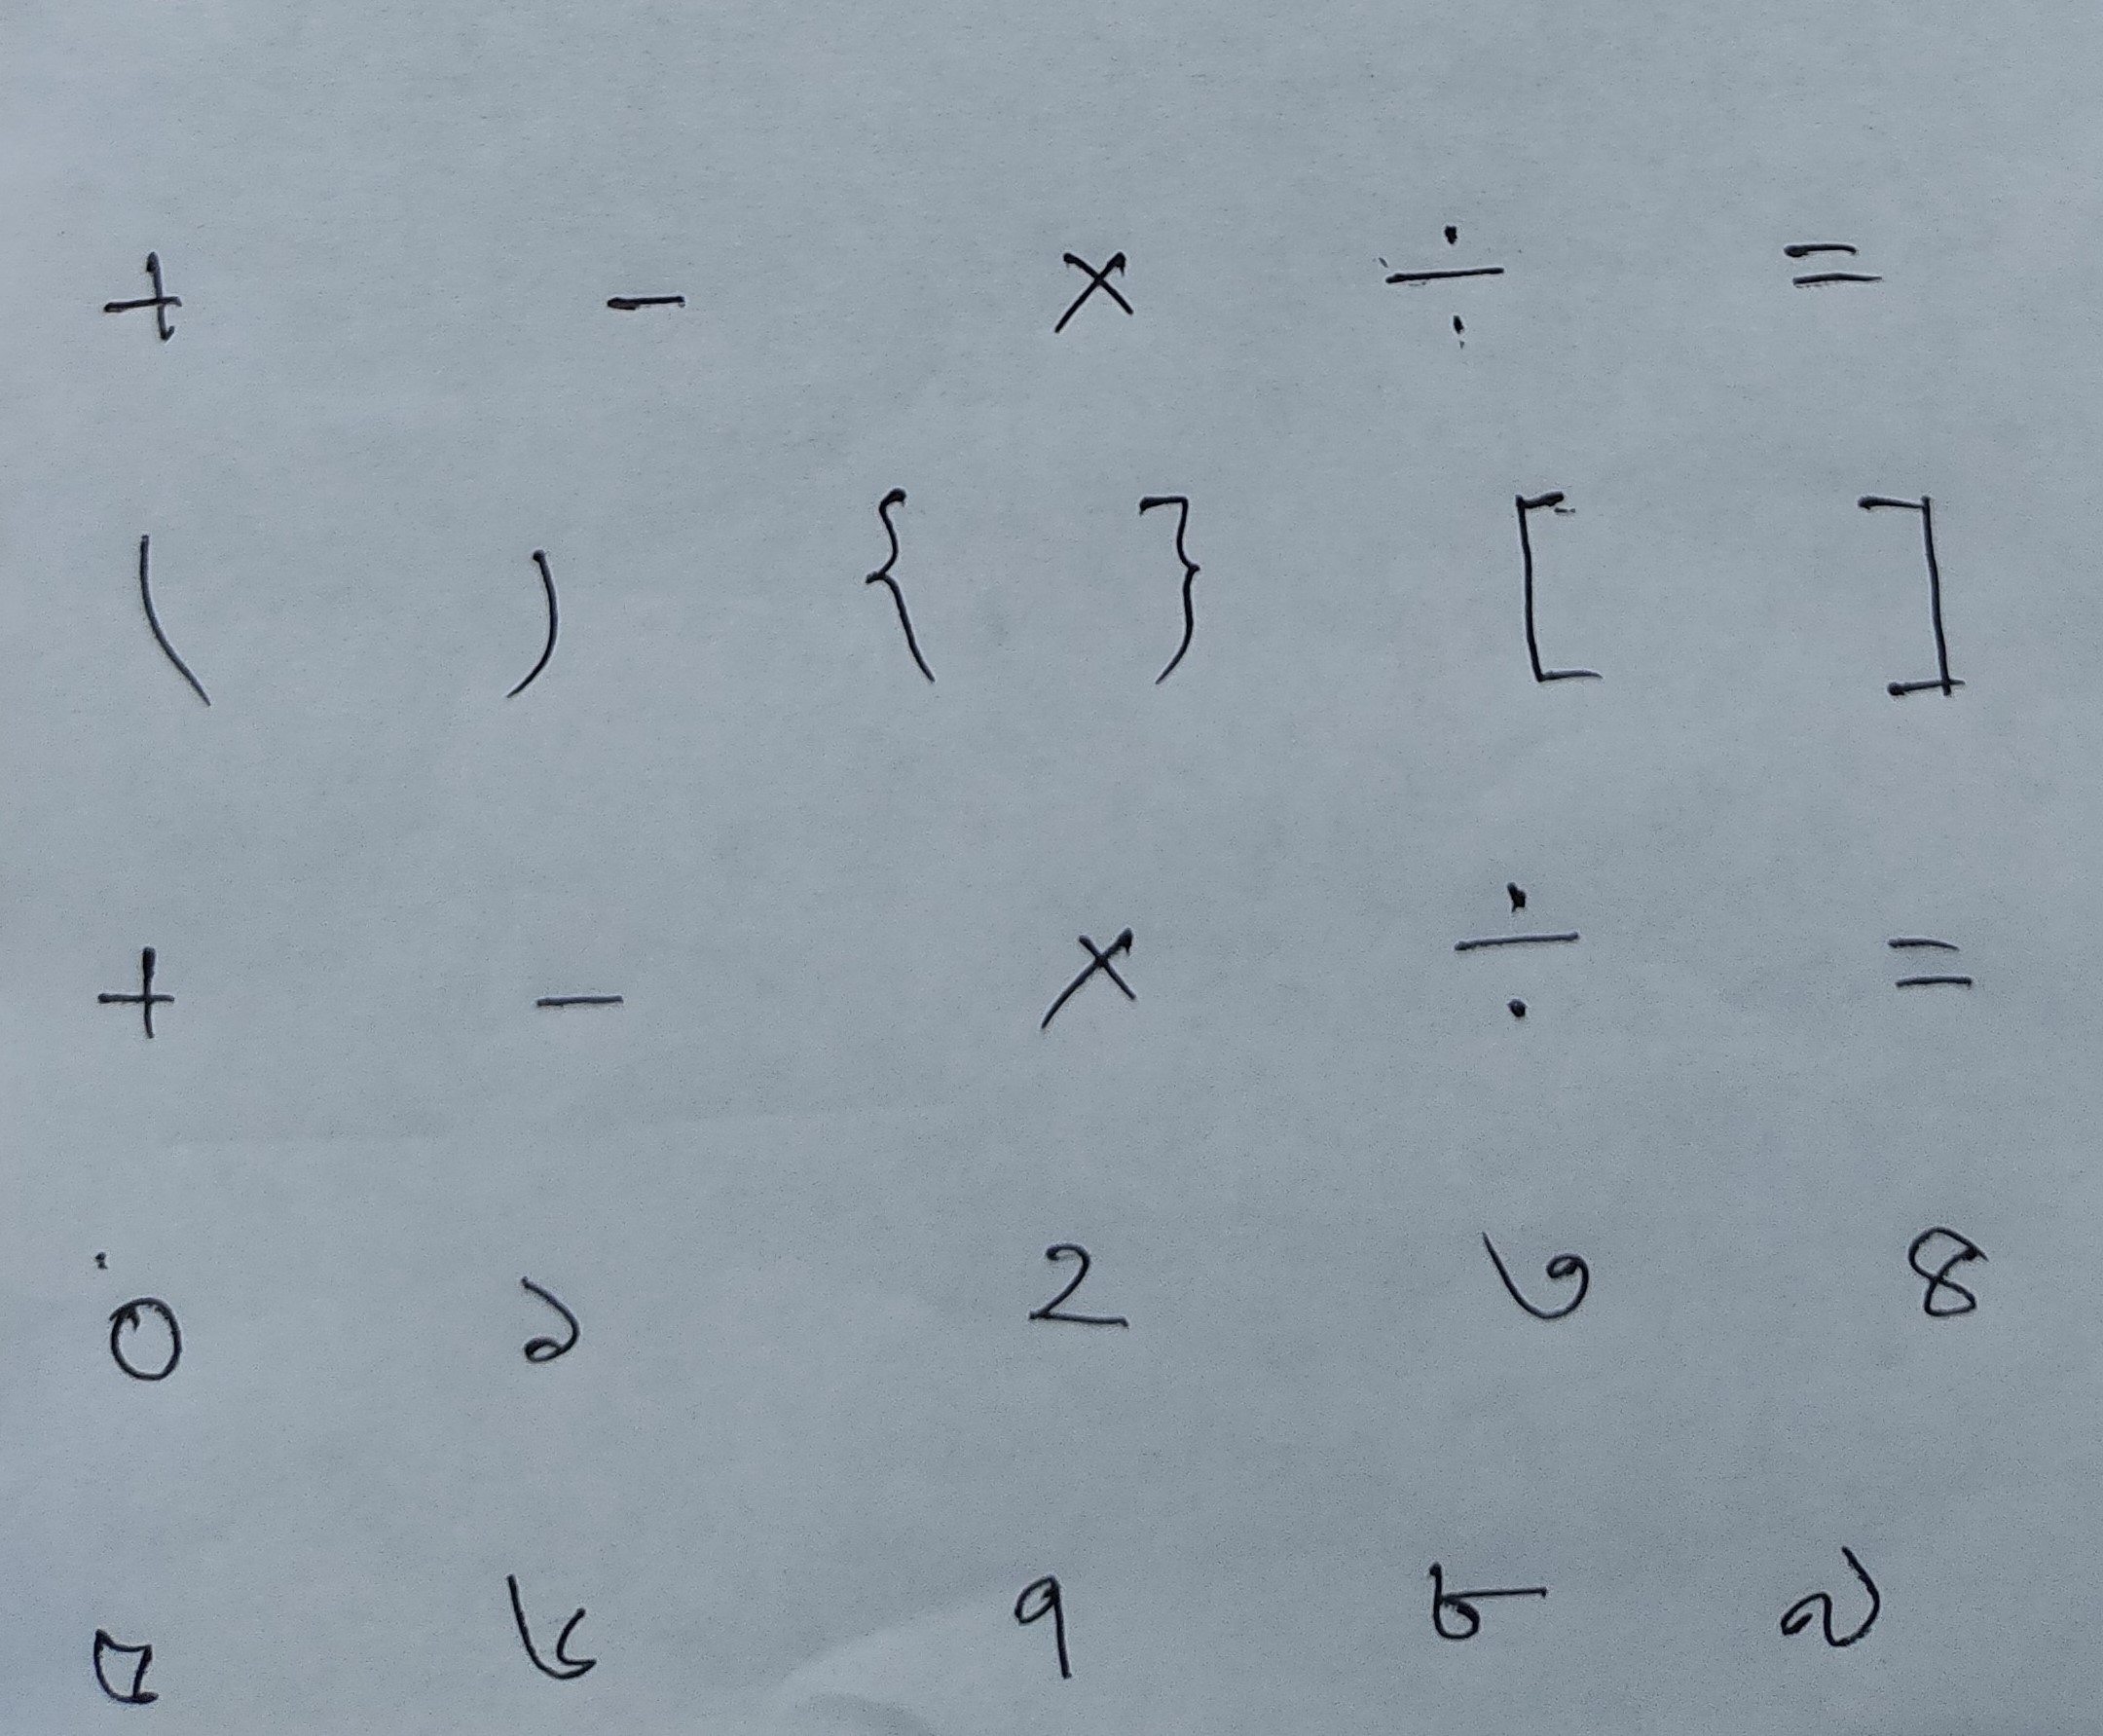 + - × ÷ =
( ) { } [ ]
+ - × ÷ =
০ ১ ২ ৩ ৪
৫ ৬ ৭ ৮ ৯